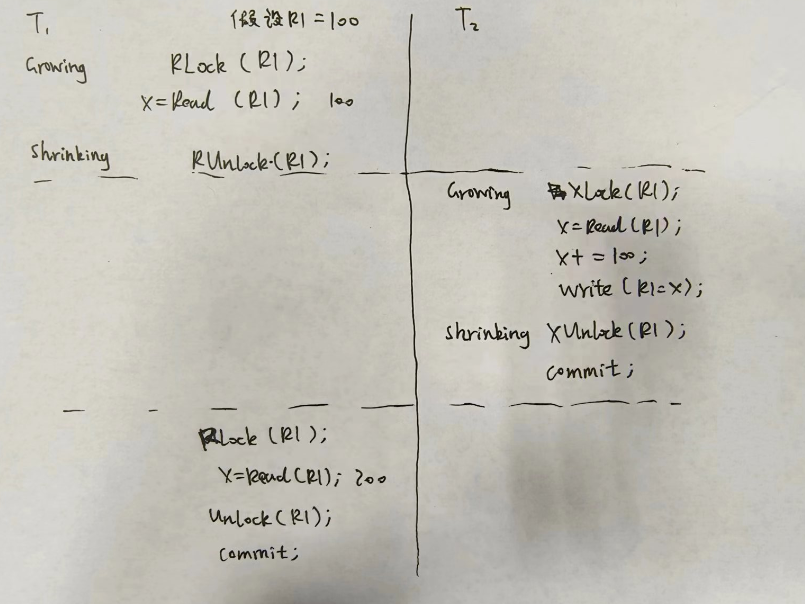 T1 假设R1=100 T2
Growing RLock (R1);
x=Read (R1); 100
Shrinking RUnlock(R1);
Growing XLock(R1);
x=Read(R1);
x+=100;
write (R1=x);
shrinking XUnlock(R1);
commit;
RLock (R1);
x=Read(R1); 200
Unlock(R1);
commit;